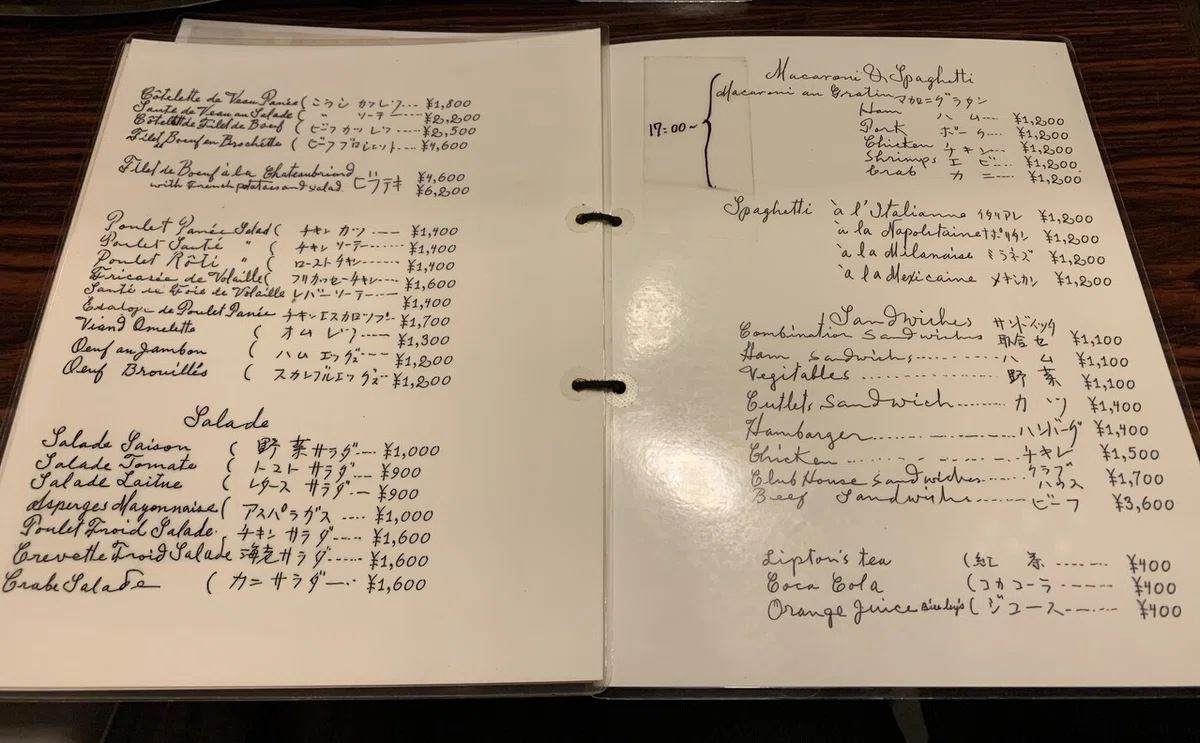 Côtelette de Veau Panée ( こうし カツレツ --- ¥1,800
Sauté de Veau au Salade ( 〃 ソーテー ---- ¥2,200
Côtelett de Filet de Boeuf ( ビーフカツレツ ---- ¥2,500
Filet Boeuf en Brochette ( ビーフブロシェット --- ¥4,600
Filet de Boeuf à la Chateaubriand ¥4,600
with French potatoes and salad ビフテキ ¥6,200
Poulet Panée Salad ( チキン カツ ---- ¥1,400
Poulet Sauté 〃 ( チキン ソーテー --- ¥1,400
Poulet Rôti 〃 ( ローストチキン --- ¥1,400
Fricasée de Volaille ( フリカッセーチキン --- ¥1,600
Sauté de Foie de Volaille レバーソーテー --- ¥1,400
Escalope de Poulet Panée チキンエスカロップ -- ¥1,700
Viand Omelette ( オムレツ ---- ¥1,300
Oeuf au Jambon ( ハムエッグス --- ¥1,200
Oeuf Brouillés ( スカンブルエッグス -- ¥1,200
Salade
Salade Saison ( 野菜サラダ --- ¥1,000
Salade Tomate ( トマト サラダ --- ¥900
Salade Laitue ( レタース サラダ -- ¥900
Asperges Mayonnaise ( アスパラガス ---- ¥1,000
Poulet Froid Salade. チキン サラダ ---- ¥1,600
Crevette Froid Salade 海老サラダ ---- ¥1,600
Crabe Salade ( カニサラダ --- ¥1,600
Macaroni & Spaghetti
17:00~ Macaroni au Gratin マカロニグラタン
Ham ハム --- ¥1,200
Pork ポーク --- ¥1,200
Chicken チキン --- ¥1,200
Shrimps エビ --- ¥1,200
Crab カニ --- ¥1,200
Spaghetti à l'Italianne イタリアン ¥1,200
à la Napolitaine ナポリタン ¥1,200
à la Milanaise ミラネズ ¥1,200
à la Mexicaine メキシカン ¥1,200
Sandwiches サンドイッチ
Combination Sandwiches 取合せ ¥1,100
Ham Sandwichs --------- ハム ¥1,100
Vegitables ------------ 野菜 ¥1,100
Cutlets Sandwich ------ カツ ¥1,400
Hambarger ------------ ハンバーグ ¥1,400
Chicken -------------- チキン ¥1,500
Club House Sandwiches ----- クラブハウス ¥1,700
Beef Sandwichs ----- ビーフ ¥3,600
Lipton's tea ( 紅茶 ------- ¥400
Coca Cola ( コカコーラ ----- ¥400
Orange Juice Bireley's ( ジュース ------ ¥400